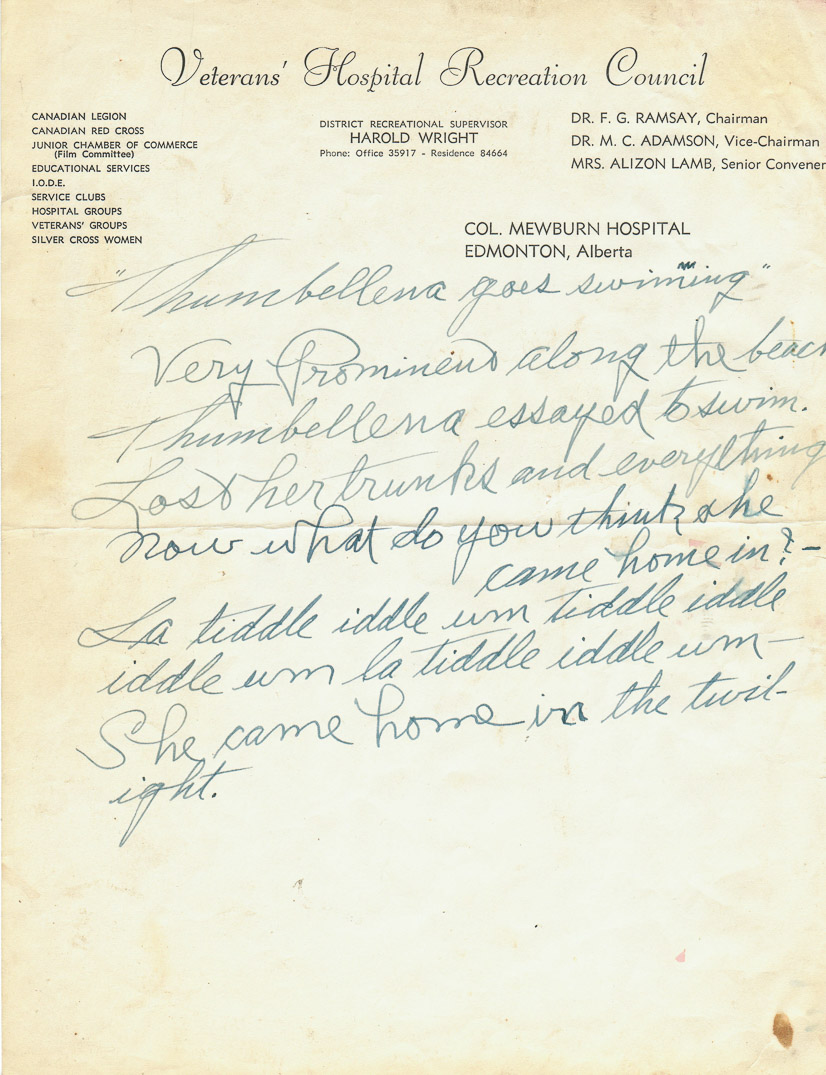 Veterans' Hospital Recreation Council
CANADIAN LEGION
CANADIAN RED CROSS
JUNIOR CHAMBER OF COMMERCE
(Film Committee)
EDUCATIONAL SERVICES
I.O.D.E.
SERVICE CLUBS
HOSPITAL GROUPS
VETERANS' GROUPS
SILVER CROSS WOMEN
DISTRICT RECREATIONAL SUPERVISOR
HAROLD WRIGHT
Phone: Office 35917 - Residence 84664
DR. F. G. RAMSAY, Chairman
DR. M. C. ADAMSON, Vice-Chairman
MRS. ALIZON LAMB, Senior Convener
COL. MEWBURN HOSPITAL
EDMONTON, Alberta
"Thumbellena goes swimming"
Very Prominent along the beach
Thumbellena essayed to swim.
Lost her trunks and everything
now what do you think she
came home in? -
La tiddle iddle um tiddle iddle
iddle um la tiddle iddle um -
She came home in the twil-
ight.